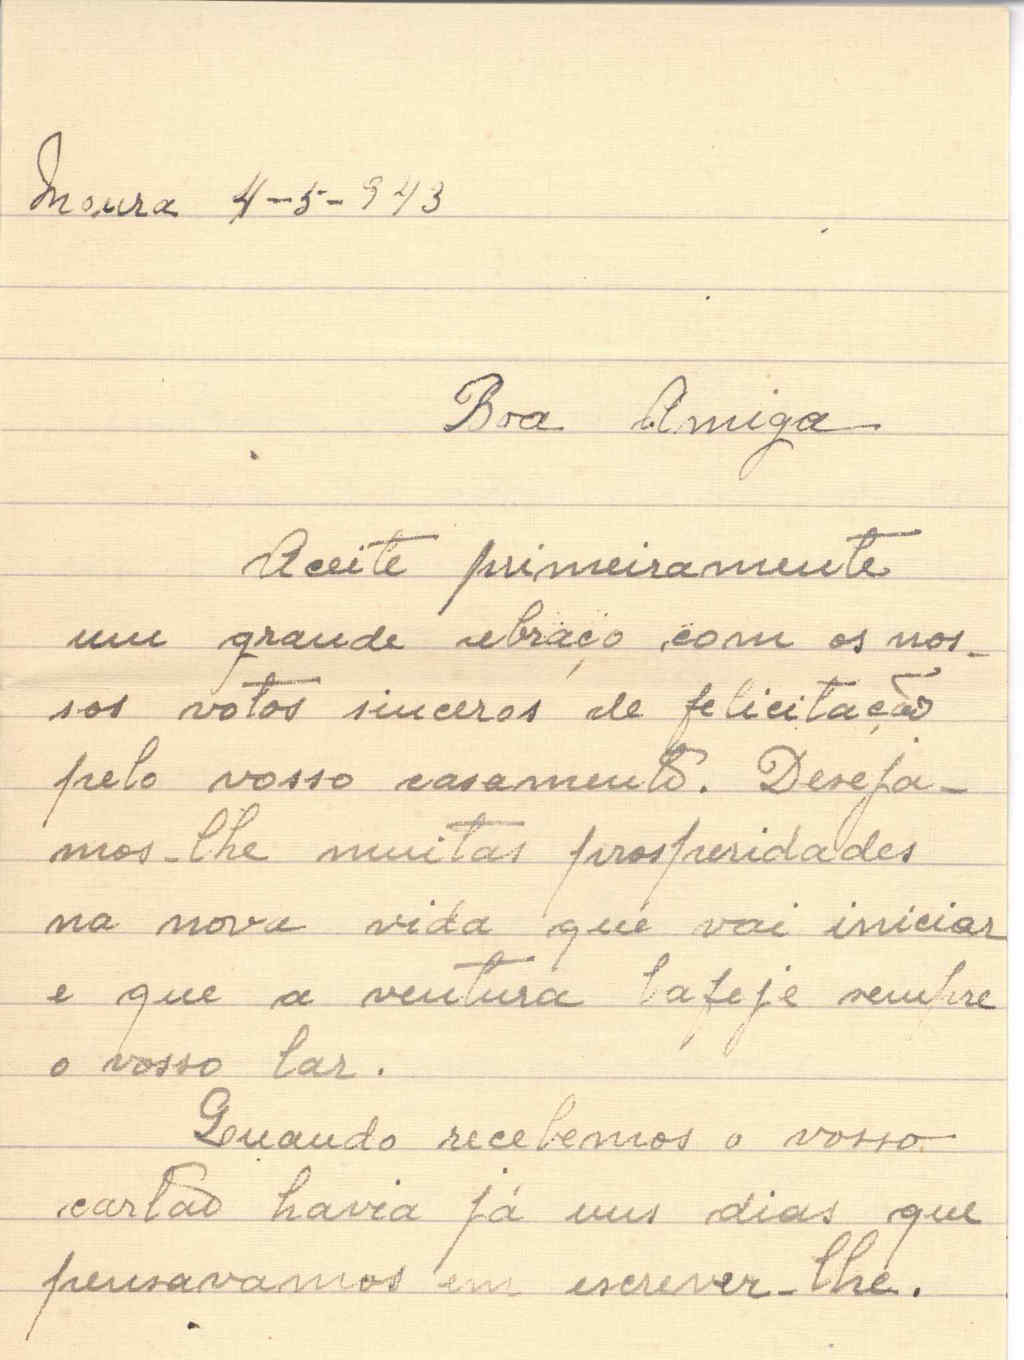 Moura 4-5-943
Boa Amiga
Aceite primeiramente
um grande abraço com os nos-
sos votos sinceros de felicitação
pelo vosso casamento. Deseja-
mos-lhe muitas prosperidades
na nova vida que vai iniciar
e que a ventura bafeje sempre
o vosso lar.
Quando recebemos o vosso
cartão havia já uns dias que
pensavamos em escrever-lhe.